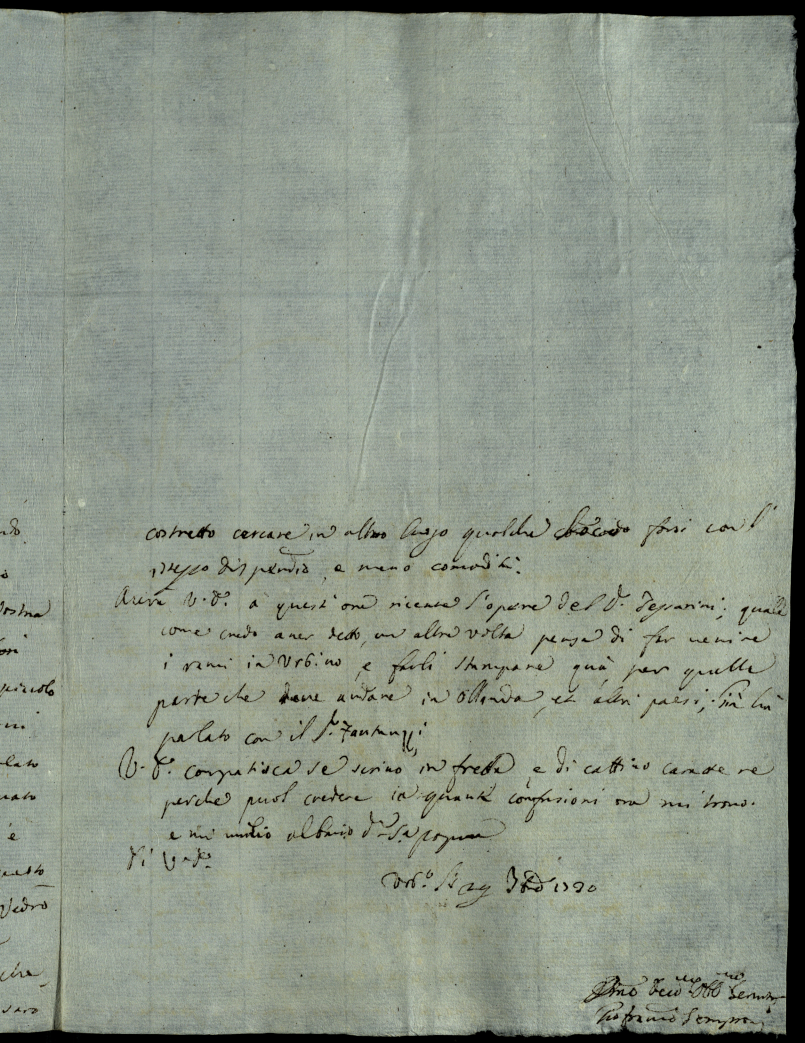 costretto cercare in altro luogo qualche forsi con l'
istesso dispendio, e meno comodità.
Avera V.S. a quest'ora ricevute l'opere del Sr. Tessarini; quale
come credo aver detto, un altra volta pensa di far venire
i rami in Urbino, e farli stampare quà per quella
parte che deve andare in Ollanda, et altri paesi, già hà
parlato con il Sr. Fantuzzi
V.S. compatisca se scrivo in fretta, e di cattivo carattere
perche puol credere in quante confusioni ora mi trovo.
e mi
Di V.S.
Urb.o li 29 1730
Servitore
Semproni
ndo
o
Vostra
piccolo
lato
e
questo
Pedro
che
saro